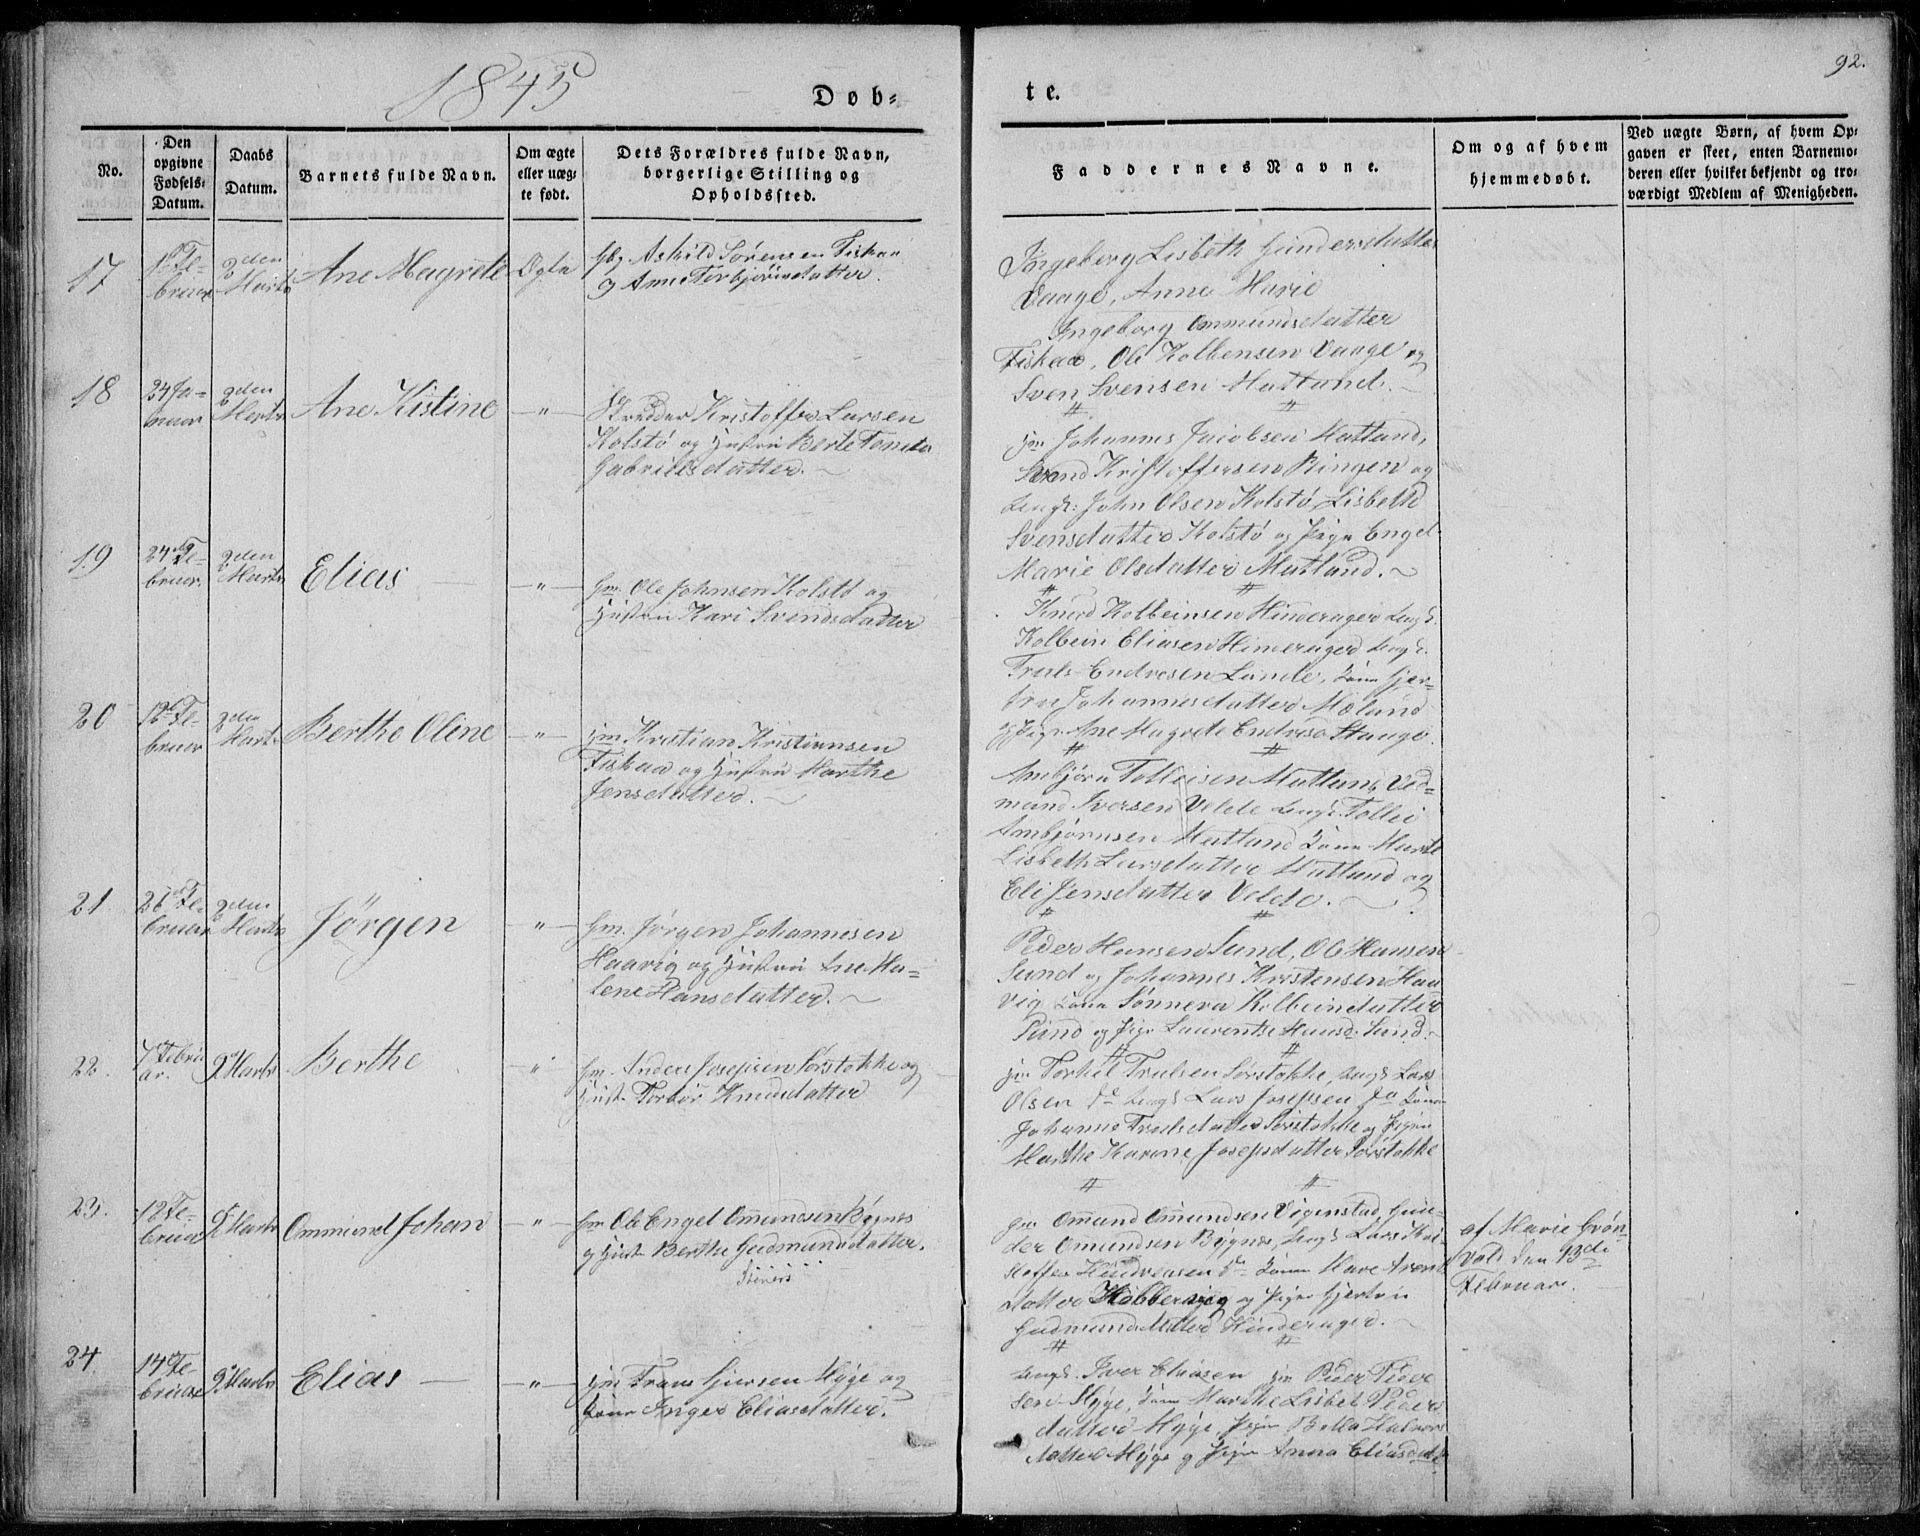 1845
Dob=
te.
92.
No.
Den
opgivne
Fødsels=
Datum.
Daabs
Datum.
Barnets fulde Navn.
Om ægte
eller uæg=
te født.
Dets Forældres fulde Navn,
borgerlige Stilling og
Opholdssted.
Faddernes Navne.
Om og af hvem
hjemmedøbt.
Ved uægte Børn, af hvem Op=
gaven er skeet, enten Barnemo=
deren eller hvilket bekjendt og tro=
værdigt Medlem af Menigheden.
17
Fe-
bruar
2den
Marts
Ane Magrete
Ægte
Askild Sørensen Fiskaa
og Anne Torbjørnsdatter.
Ingeborg Lisbeth Gundersdatter
Vaage, Anne Marie
Ingeborg Ommundsdatter
Fiskaa, Ole Kolbensen Vaage og
Sven Svensen Matland.
18
24 Ja-
nuar
2den
Marts
Ane Kistine
— " —
Skredder Kristoffer Larsen
Kolstø og Hustru Berte Tomea
Gabrielsdatter.
Johannes Jacobsen Matland,
Svend Kristoffersen Ringen og
Ungk: John Olsen Kolstø, Lisbeth
Svensdatter Kolstø og Pige Engel
Marie Olsdatter Matland.
19
24 Fe-
bruar.
2den
Marts
Elias
— " —
Gm. Ole Johnsen Kolstø og
Hustru Kari Svendsdatter
Knud Kolbeinsen Hinderager Ungk.
Kolbein Eliasen Hinerager Ungk.
Truls Endresen Lande, Kone Gjer-
tru Johannesdatter Mæland
og Pige Ane Magrete Endresd Hauge.
20
12 Fe-
bruar
2den
Marts
Berthe Oline
— " —
Kristian Kristiansen
Fiskaa og Hustru Marthe
Jensdatter.
Ambjørn Tolleisen Matland, Ved=
mund Iversen Velde Ungk. Tollei
Ambjørnsen Matland Kone Marte
Lisbeth Larsdatter Matland og
Eli Jensdatter Velde.
21
26 Fe-
bruar
2den
Marts
Jörgen
— " —
Gm. Jörgen Johannesen
Haavig og Hustru Ane Ma=
lene Hansdatter.
Peder Hansen Sund, Ole Hansen
Sund og Johannes Kristensen Haa
vig Kone Sønneva Kolbeinsdatter
Sund og Pige Laurentse Hansd. Sund.
22.
7 Februa
ar.
2 Marts
Berthe
"
Gm. Anders Josepsen Sørstokke og
Hust. Torbør Knudsdatter
Torkil Trulsen Sørstokke, Ungk Lars
Olsen do Ungk Lars Josepsen do Kone
Johanne Trulsdatter Sørstokke og Pigen
Marthe Karine Josepsdatter Sørstokke
23.
12 Fe-
bruar
2 Marts
Ommund Johan
— " —
Gm Ole Engel Omundsen Bøgnes
og Hust. Berthe Gudmundsdatter.
Omund Omundsen Vigenstad, Gun-
der Omundsen Bygnes, Ungk Lars Kri-
stoffer do Kone Mare Arend
datter Kobbervig og Pige Gjertru
Gudmundsdatter Hinderager.
af Marie Grøn-
vold den 13de
Februar.
24
14 Fe
bruar
2 Marts
Elias —
— " —
Frans Iversen Høje og
Kone Inger Eliasdatter.
Ungk. Iver Eliasen Peder Peder
sen Høje, Kone Marthe Lisbet Peder
datter Høje, Pige Bella Halvors
datter Høje og Pige Anna Eliasdat